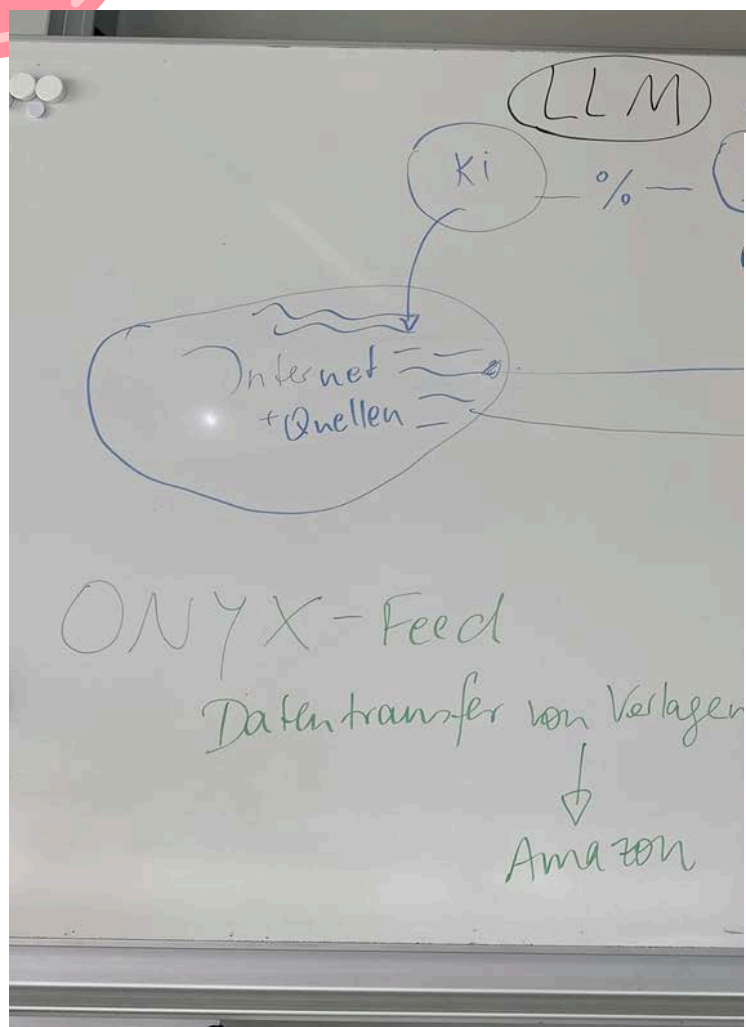 LLM
Ki
%
Internet
+Quellen
ONYX-Feed
Datentransfer von Verlagen
Amazon